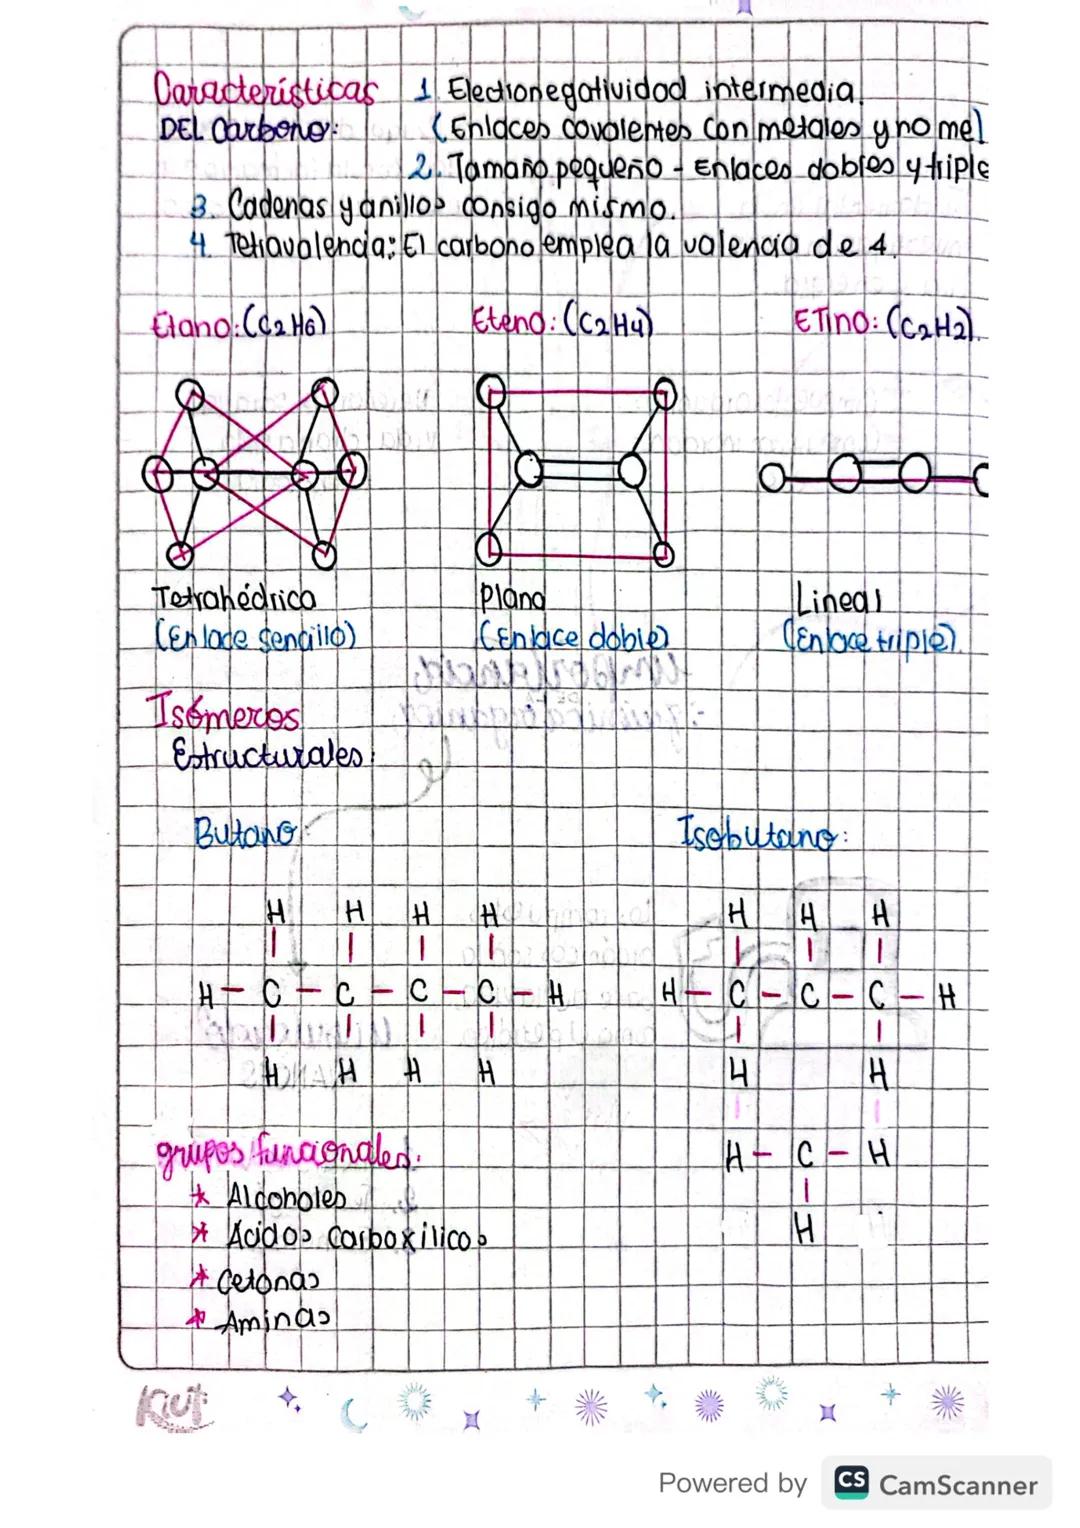 Características 1. Electronegatividad intermedia.
DEL Carbono: (Enlaces covalentes con metales y no me
2. Tamaño pequeño - Enlaces dobles y triple
3. Cadenas y anillos consigo mismo.
4. Tetravalencia: El carbono emplea la valencia de 4.
Etano: (C2H6) Eteno: (C2H4) ETino: (C2H2).
Tetrahédrica Plana Lineal
(Enlace sencillo) (Enlace doble) (Enlace triple)
Isómeros
Estructurales:
Butano: Isobutano:
H H H H H H H
H - C - C - C - C - H H - C - C - C - H
H H H H H H
H - C - H
H
grupos funcionales.
* Alcoholes
* Acidos Carboxilicos
* Cetonas
* Aminas
Kiut
Powered by CS CamScanner